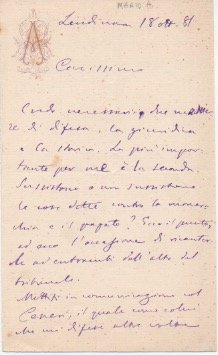 MARIO A.
Lendinara 18 ott. 81
Carissimo
Credo necessario due
re di difesa, la giuridica
e la storica. La più impor
tante per me è la seconda.
Sussistono o non sussistono
le cose dette contro la monar
chia e il papato? Ecco il punto,
ed ecco l'occasione di ricantar
le ad entrambi dall'alto del
tribunale.
Mettiti in comunicazione col
Ceneri, il quale come colui
che mi difese altra volta